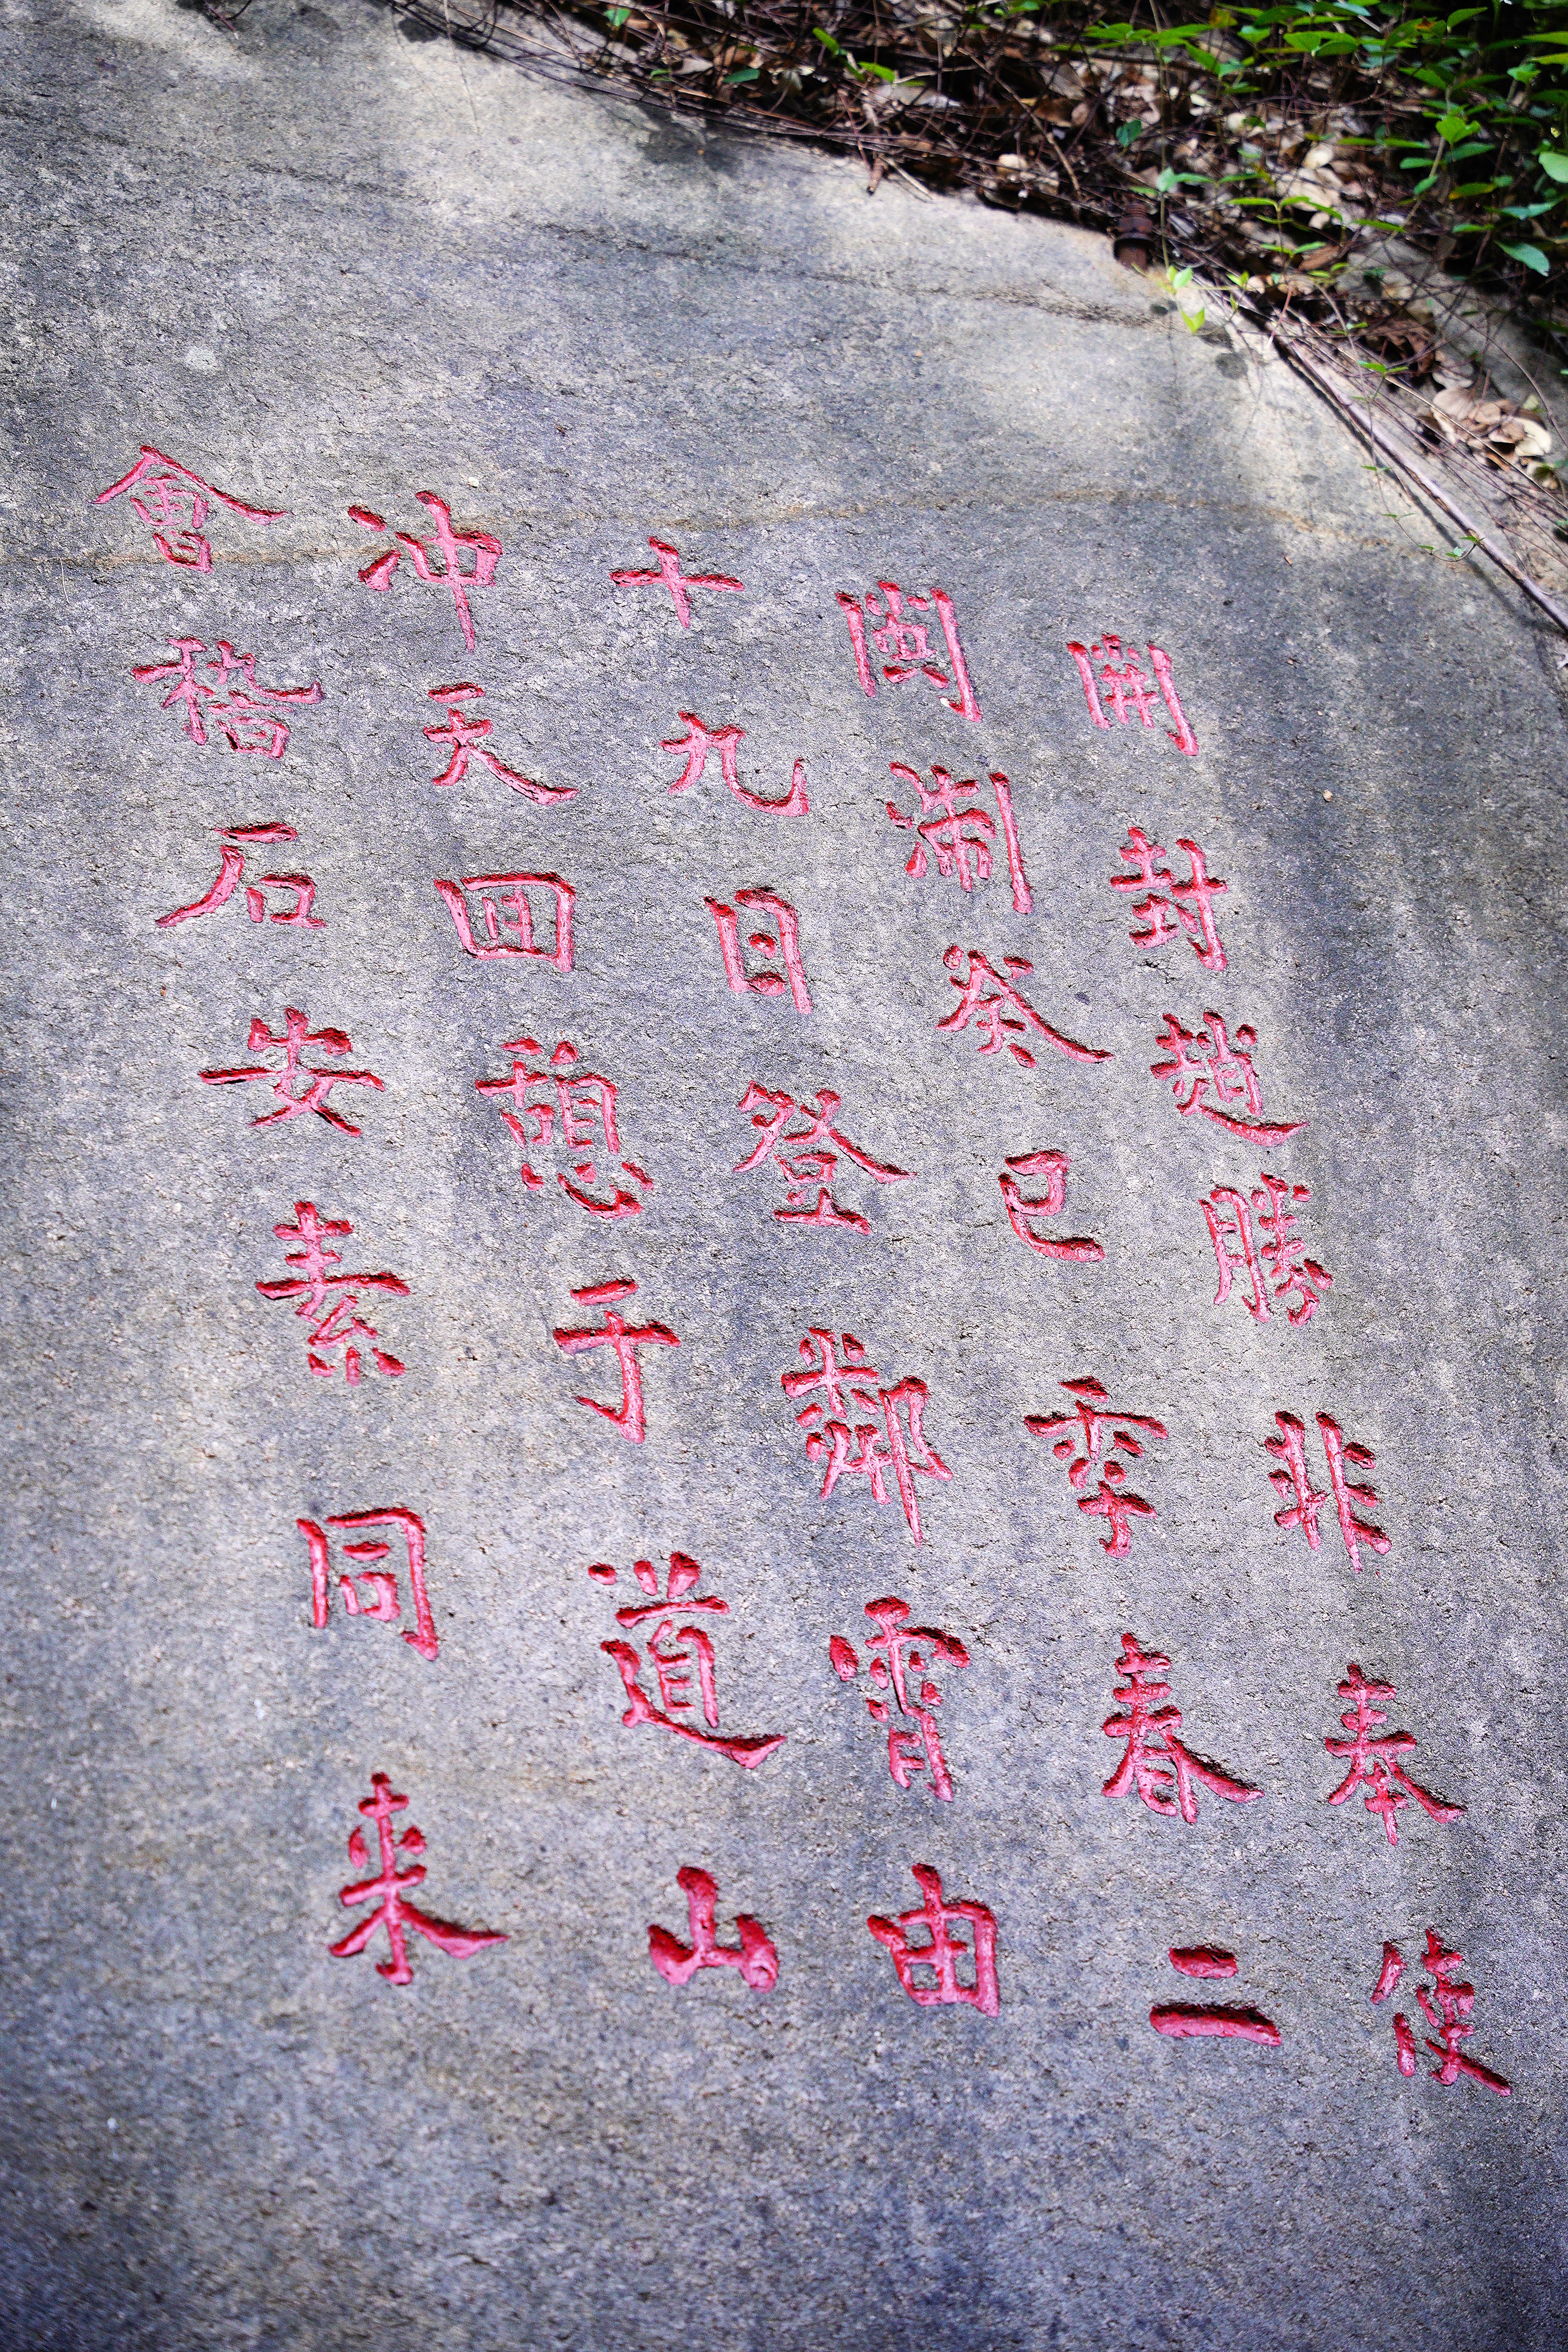 開封趙勝非奉使
閩淛癸巳季春二
十九日登鄰霄由
冲天囬憩于道山
會稽石安素同來